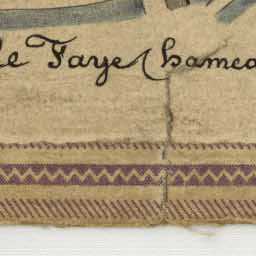 le Faye Chamea